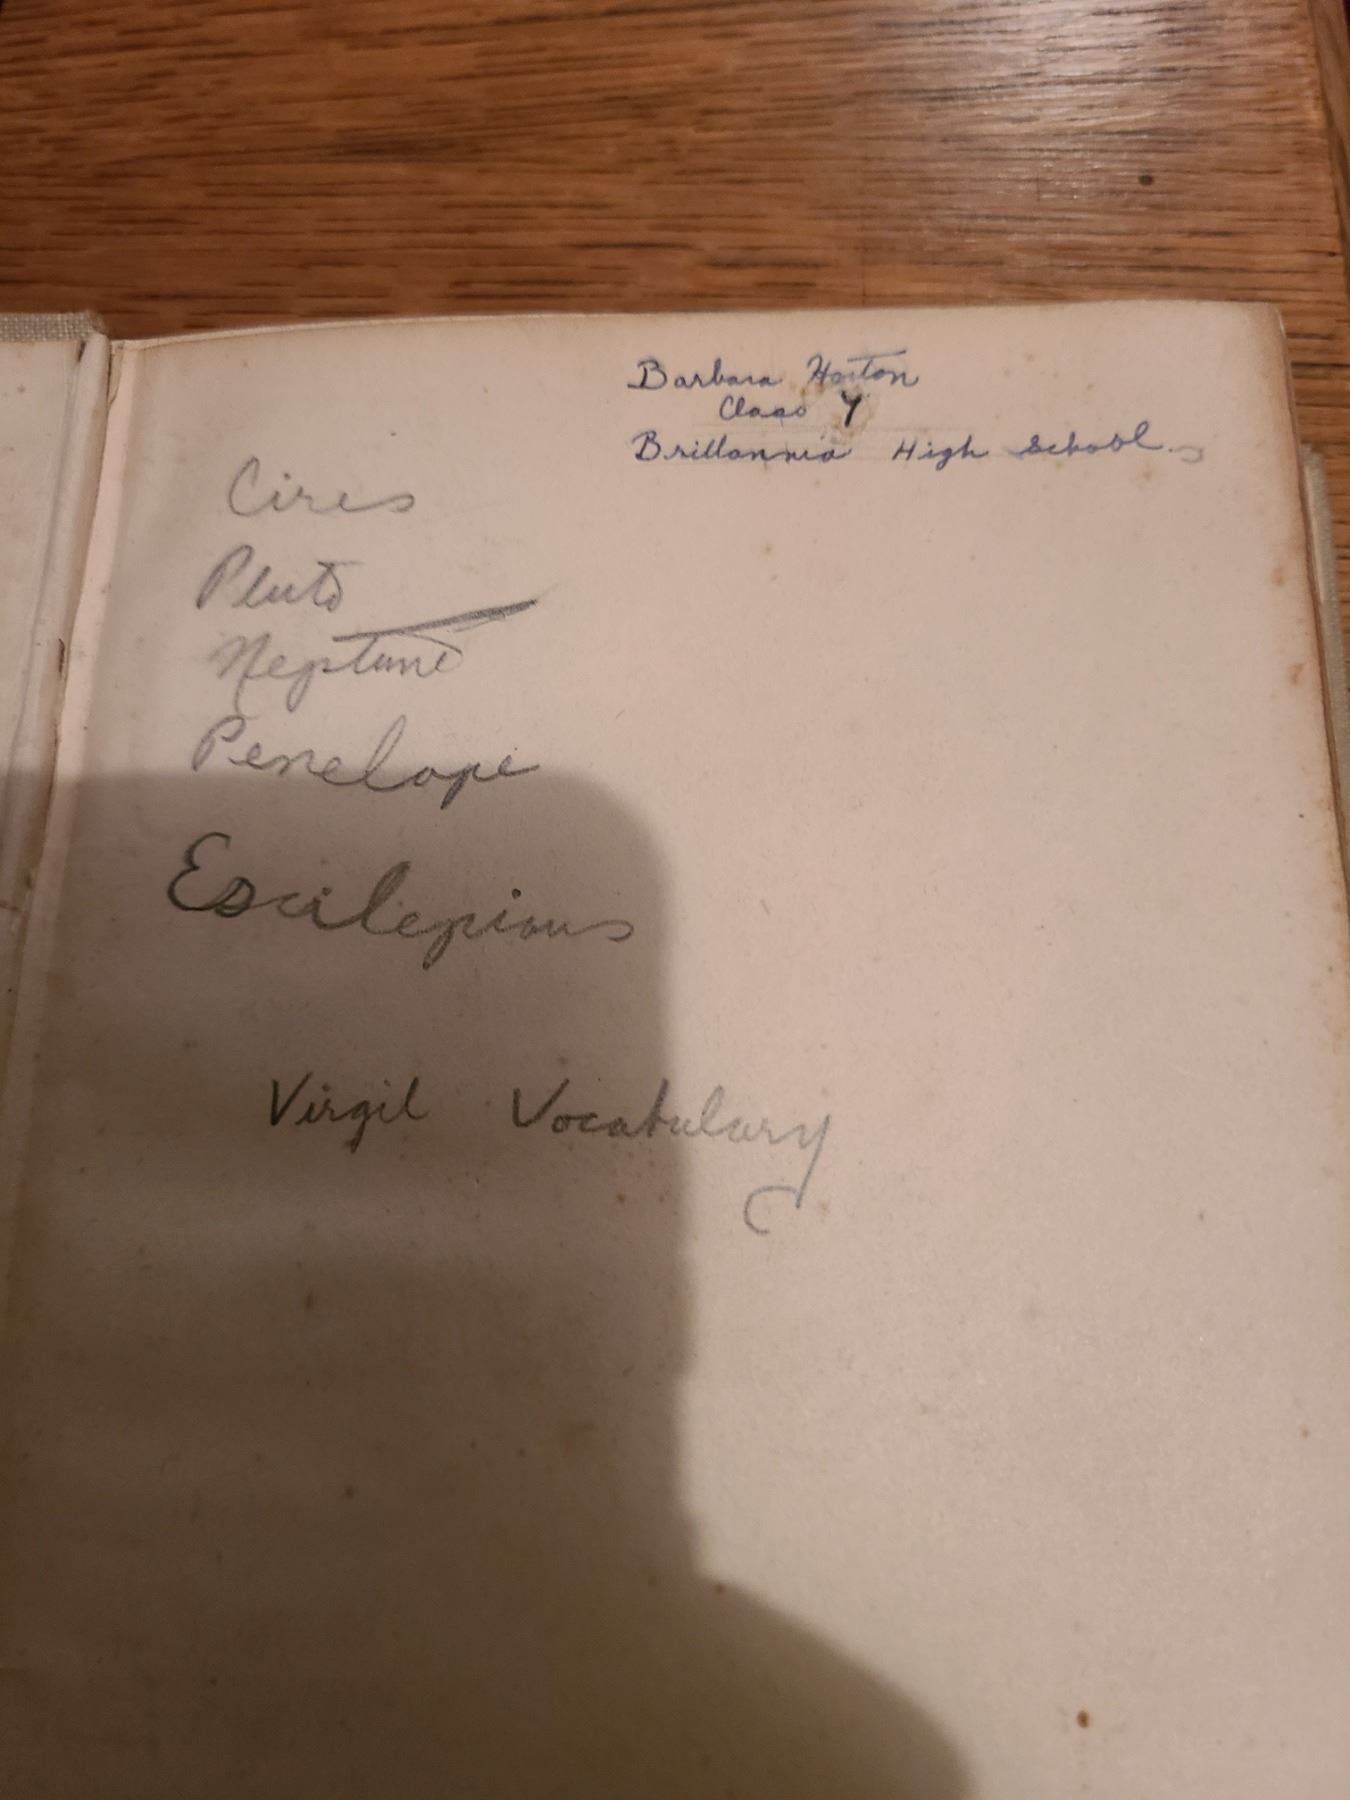 Barbara Horton
Class Y
Brittannia High School
Cires
Pluto
Neptune
Penelope
Esculepious
Virgil Vocabulary